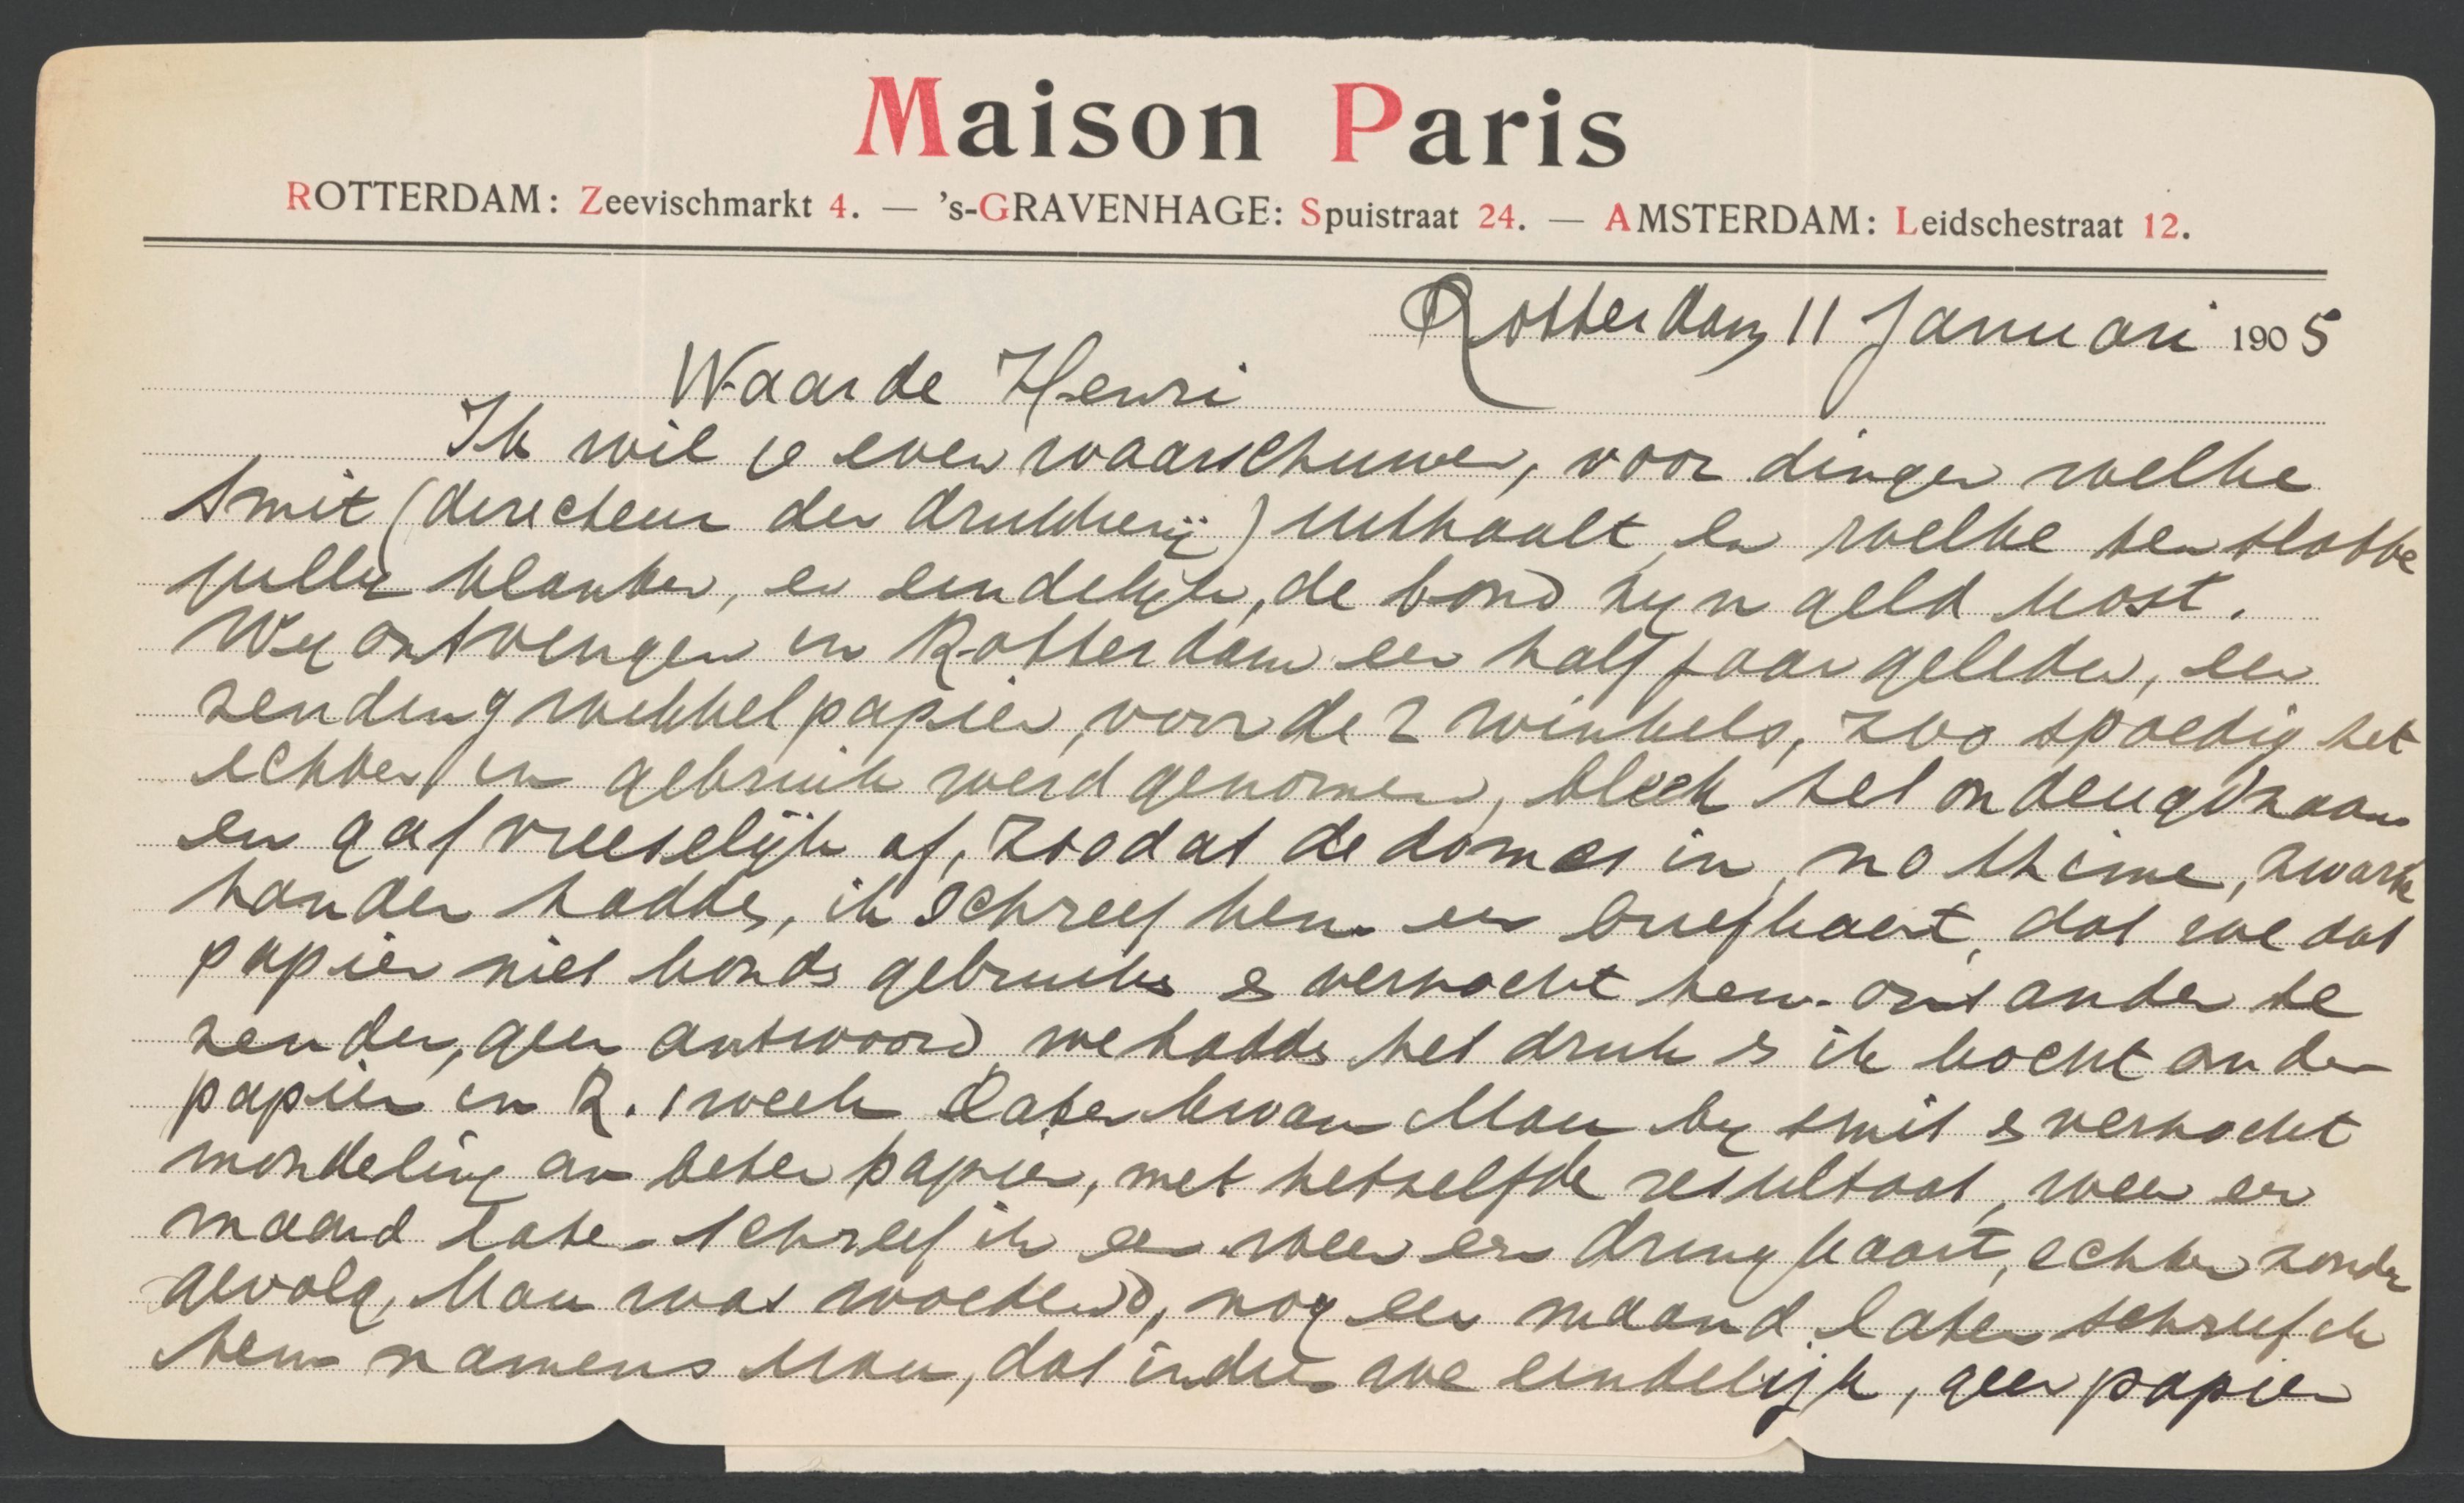 Maison Paris
ROTTERDAM: Zeevischmarkt 4. — 's-GRAVENHAGE: Spuistraat 24. — AMSTERDAM: Leidschestraat 12.
Rotterdam 11 Januari 1905
Waarde Henri
Ik wil je even waarschuwen, voor dingen welke
Smit (directeur der drukkerij) uithaalt, en welke ten slotte
jullie klanten, en eindelijk, de bond zijn geld kost.
Wij ontvengen in Rotterdam een half jaar geleden, een
zending wikkelpapier, voor de 2 winkels, zoo spoedig het
echter in gebruik werd genomen, bleek het ondeugdzaam
en gaf vreeselijk af, zoodat de dames in, no thime, zwarte
handen hadden, ik schreef hem een briefkaart, dat we dat
papier niet konde gebruike & verzocht hem ons ander te
zenden, geen antwoord, we hadde het druk & ik kocht ander
papier in R. 1 week later kwam Mau bij Smit & verzocht
mondeling om beter papier, met hetzelfde resultaat, weer een
maand later schreef ik er weer een dringkaart, echter zonder
gevolg, Mau was woedend, nog een maand later schreef ik
hem namens Mau, dat indien we eindelijk, geen papier